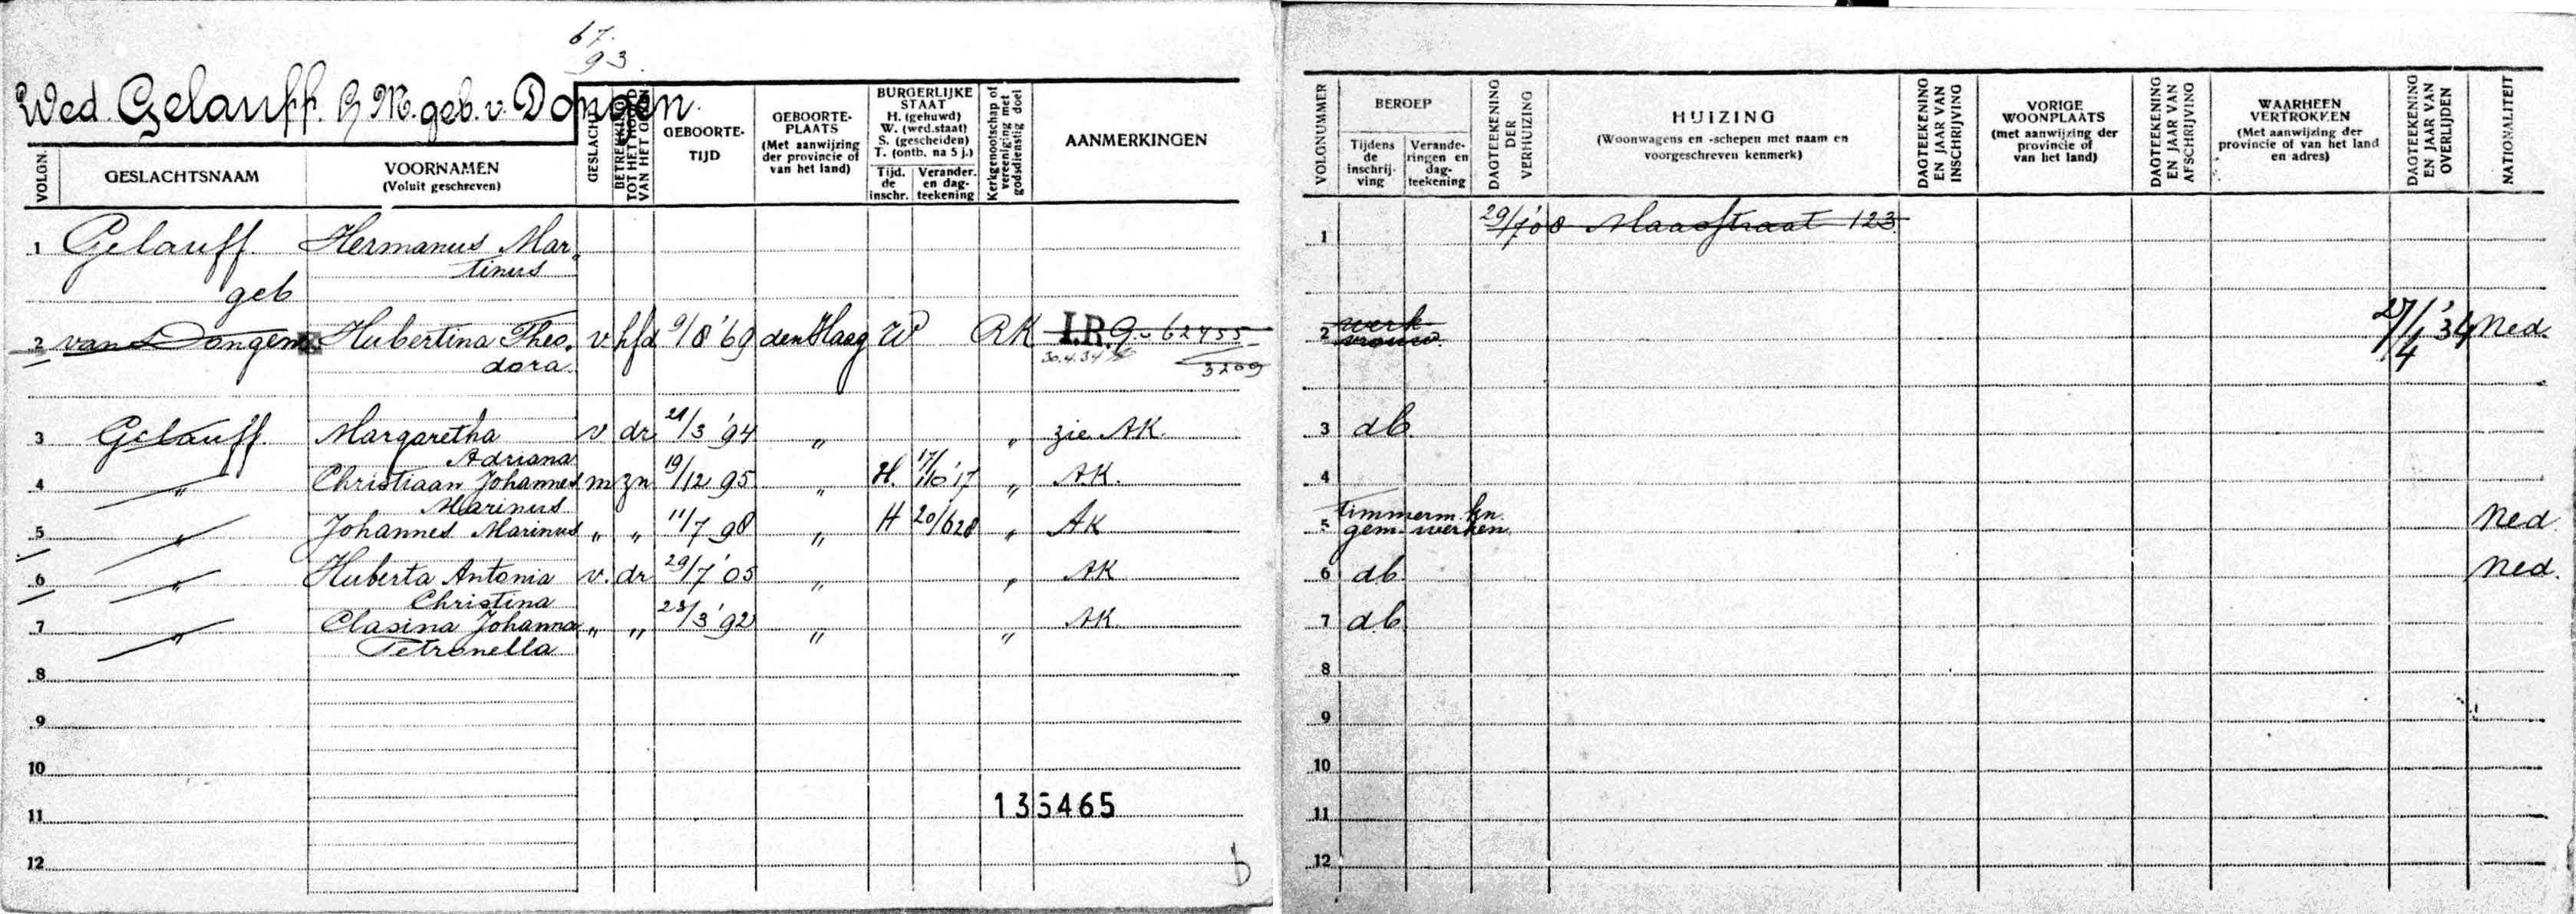 67.
93.
Wed. Gelauff. H M. geb. v. Dongen.
VOLGN.
GESLACHTSNAAM
VOORNAMEN
(Voluit geschreven)
GESLACHT
BETREKKING
TOT HET HOOFD
VAN HET GEZIN
GEBOORTE-
TIJD
GEBOORTE-
PLAATS
(Met aanwijzing
der provincie of
van het land)
BURGERLIJKE
STAAT
H. (gehuwd)
W. (wed.staat)
S. (gescheiden)
T. (ontb. na 5 j.)
Tijd.
de
inschr.
Verander.
en dag-
teekening
Kerkgenootschap of
vereeniging met
godsdienstig doel
AANMERKINGEN
1 Gelauff Hermanus Mar-
tinus
geb
2 van Dongen Hubertina Theo- v hfd 9/8 '69 den Haag W RK I.R. 9-62455
dora 30.4.34 3209
3 Gelauff Margaretha v dr 21/3 '94 " " zie AK.
Adriana
4 " Christiaan Johannes m zn 19/12 95 " H. 17/10 '17 " AK.
Marinus
5 " Johannes Marinus " " 11/7 98 " H 20/6 28 " AK
6 " Huberta Antonia v. dr 29/7 '05 " " AK
Christina
7 " Clasina Johanna " " 23/3 '92 " " AK
Petronella
8
9
10
11
12
135465
b
VOLGNUMMER
BEROEP
Tijdens
de
inschrij-
ving
Verande-
ringen en
dag-
teekening
DAGTEEKENING
DER
VERHUIZING
HUIZING
(Woonwagens en -schepen met naam en
voorgeschreven kenmerk)
DAGTEEKENING
EN JAAR VAN
INSCHRIJVING
VORIGE
WOONPLAATS
(met aanwijzing der
provincie of
van het land)
DAGTEEKENING
EN JAAR VAN
AFSCHRIJVING
WAARHEEN
VERTROKKEN
(Met aanwijzing der
provincie of van het land
en adres)
DAGTEEKENING
EN JAAR VAN
OVERLIJDEN
NATIONALITEIT
1 29/7 '08 Maasstraat 123
2 werk- 27/4 '34 Ned.
vrouw.
3 db.
4
timmerm. kn.
5 gem. werken Ned.
6 db. Ned.
7 db.
8
9
10
11
12